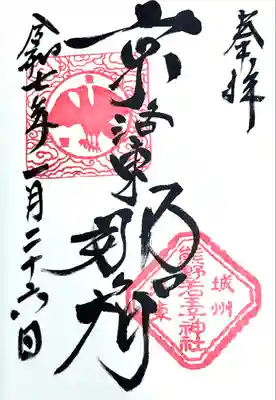 奉拝
京洛東那智
城州
熊野若王子神社
東
令和七年一月二十六日